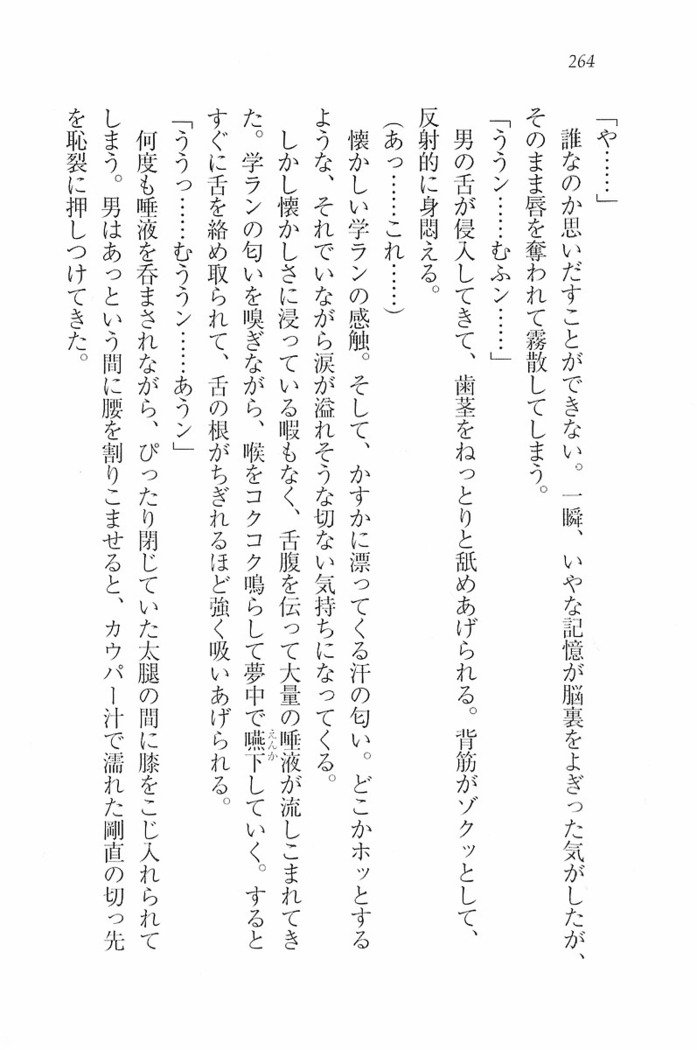 264
「や……」
誰なのか思いだすことができない。一瞬、いやな記憶が脳裏をよぎった気がしたが、
そのまま唇を奪われて霧散してしまう。
「ううン……むふン……」
男の舌が侵入してきて、歯茎をねっとりと舐めあげられる。背筋がゾクッとして、
反射的に身悶える。
(あっ……これ……)
懐かしい学ランの感触。そして、かすかに漂ってくる汗の匂い。どこかホッとする
ような、それでいながら涙が溢れそうな切ない気持ちになってくる。
しかし懐かしさに浸っている暇もなく、舌腹を伝って大量の唾液が流しこまれてき
た。学ランの匂いを嗅ぎながら、喉をコクコク鳴らして夢中で嚥下えんかしていく。すると
すぐに舌を絡め取られて、舌の根がちぎれるほど強く吸いあげられる。
「ううっ……むううン……あうン」
何度も唾液を呑まされながら、ぴったり閉じていた太腿の間に膝をこじ入れられて
しまう。男はあっという間に腰を割りこませると、カウパー汁で濡れた剛直の切っ先
を恥裂に押しつけてきた。